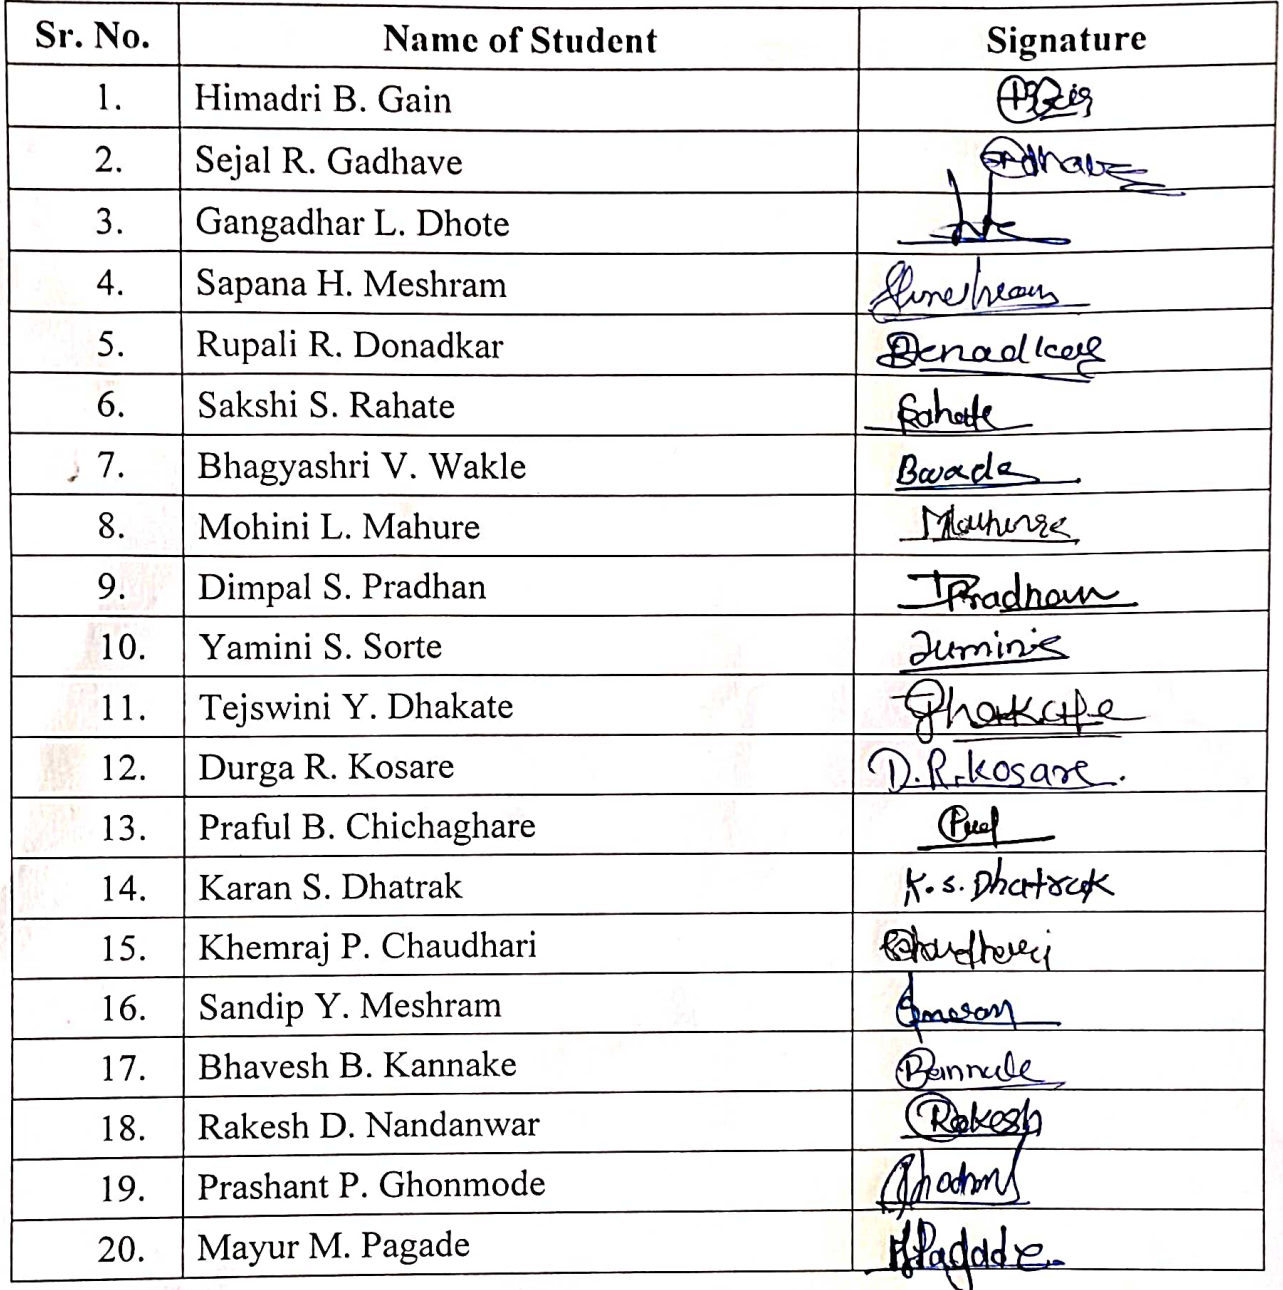 Sr. No. Name of Student Signature
1. Himadri B. Gain
2. Sejal R. Gadhave
3. Gangadhar L. Dhote
4. Sapana H. Meshram
5. Rupali R. Donadkar
6. Sakshi S. Rahate Rahate
7. Bhagyashri V. Wakle
8. Mohini L. Mahure
9. Dimpal S. Pradhan Pradhan
10. Yamini S. Sorte
11. Tejswini Y. Dhakate
12. Durga R. Kosare D.R.Kosare.
13. Praful B. Chichaghare
14. Karan S. Dhatrak K.S. Dhatrak
15. Khemraj P. Chaudhari
16. Sandip Y. Meshram
17. Bhavesh B. Kannake
18. Rakesh D. Nandanwar Rakesh
19. Prashant P. Ghonmode
20. Mayur M. Pagade